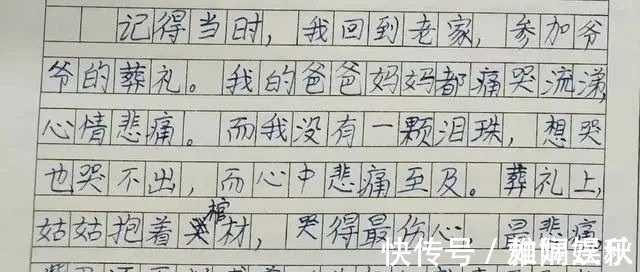 记得当时，我回到老家，参加爷
爷的葬礼。我的爸爸妈妈都痛哭流涕，
心情悲痛。而我没有一颗泪珠，想哭
也哭不出，而心中悲痛至及。葬礼上，
姑姑抱着棺材，哭得最伤心 最悲痛
快传号 /